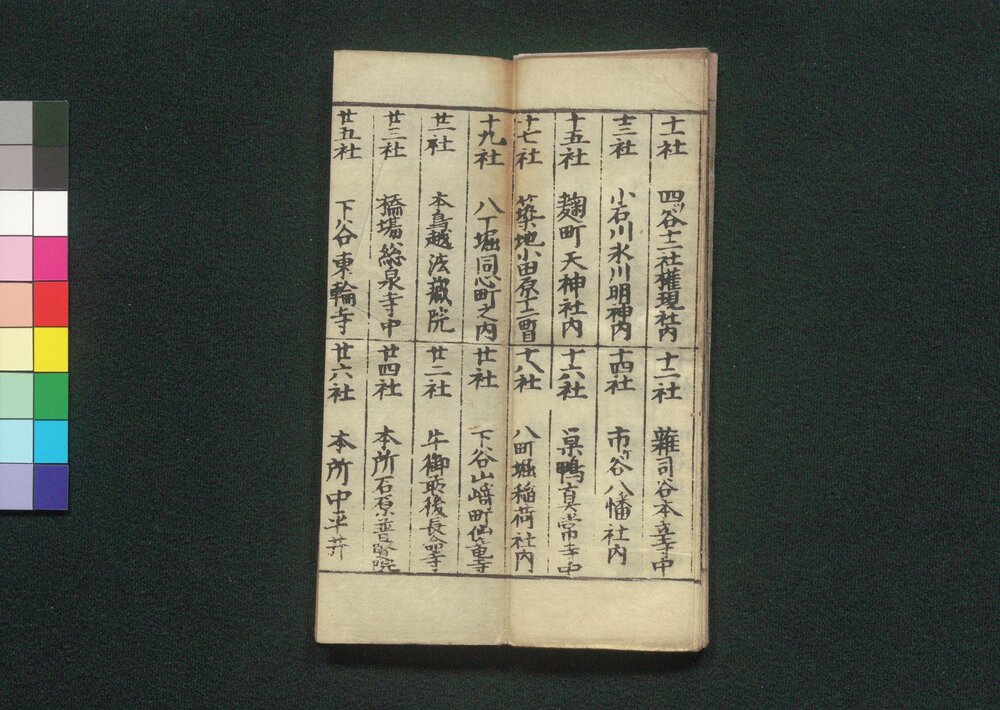 十一社 四ッ谷十二社権現社内
十二社 雑司谷本立寺中
十三社 小石川氷川明神内
十四社 市ヶ谷八幡社内
十五社 麹町天神社内
十六社 巣鴨真常寺中
十七社 築地小田原丁二町目
十八社 八町堀稲荷社内
十九社 八丁堀同心町之内
廿社 下谷山崎町仙竜寺
廿一社 本鳥越法蔵院
廿二社 牛御前後長命寺
廿三社 橋場総泉寺中
廿四社 本所石原普賢院
廿五社 下谷東輪寺
廿六社 本所中平井